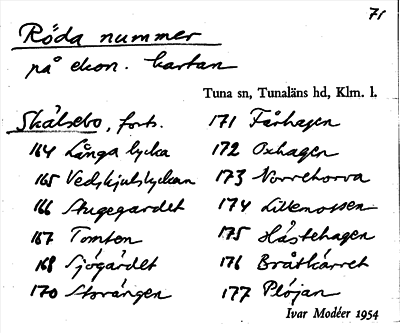 71
Röda nummer
på ekon. kartan
Tuna sn, Tunaläns hd, Klm. l.
Skälsebo, forts.
164 Långa lycka
165 Vedskjulslyckan
166 Stugegärdet
167 Tomten
168 Sjögärdet
170 Storängen
171 Fårhagen
172 Oxhagen
173 Norrehorva
174 Lillemossen
175 Hästehagen
176 Bråtkärret
177 Plöjan
Ivar Modéer 1954